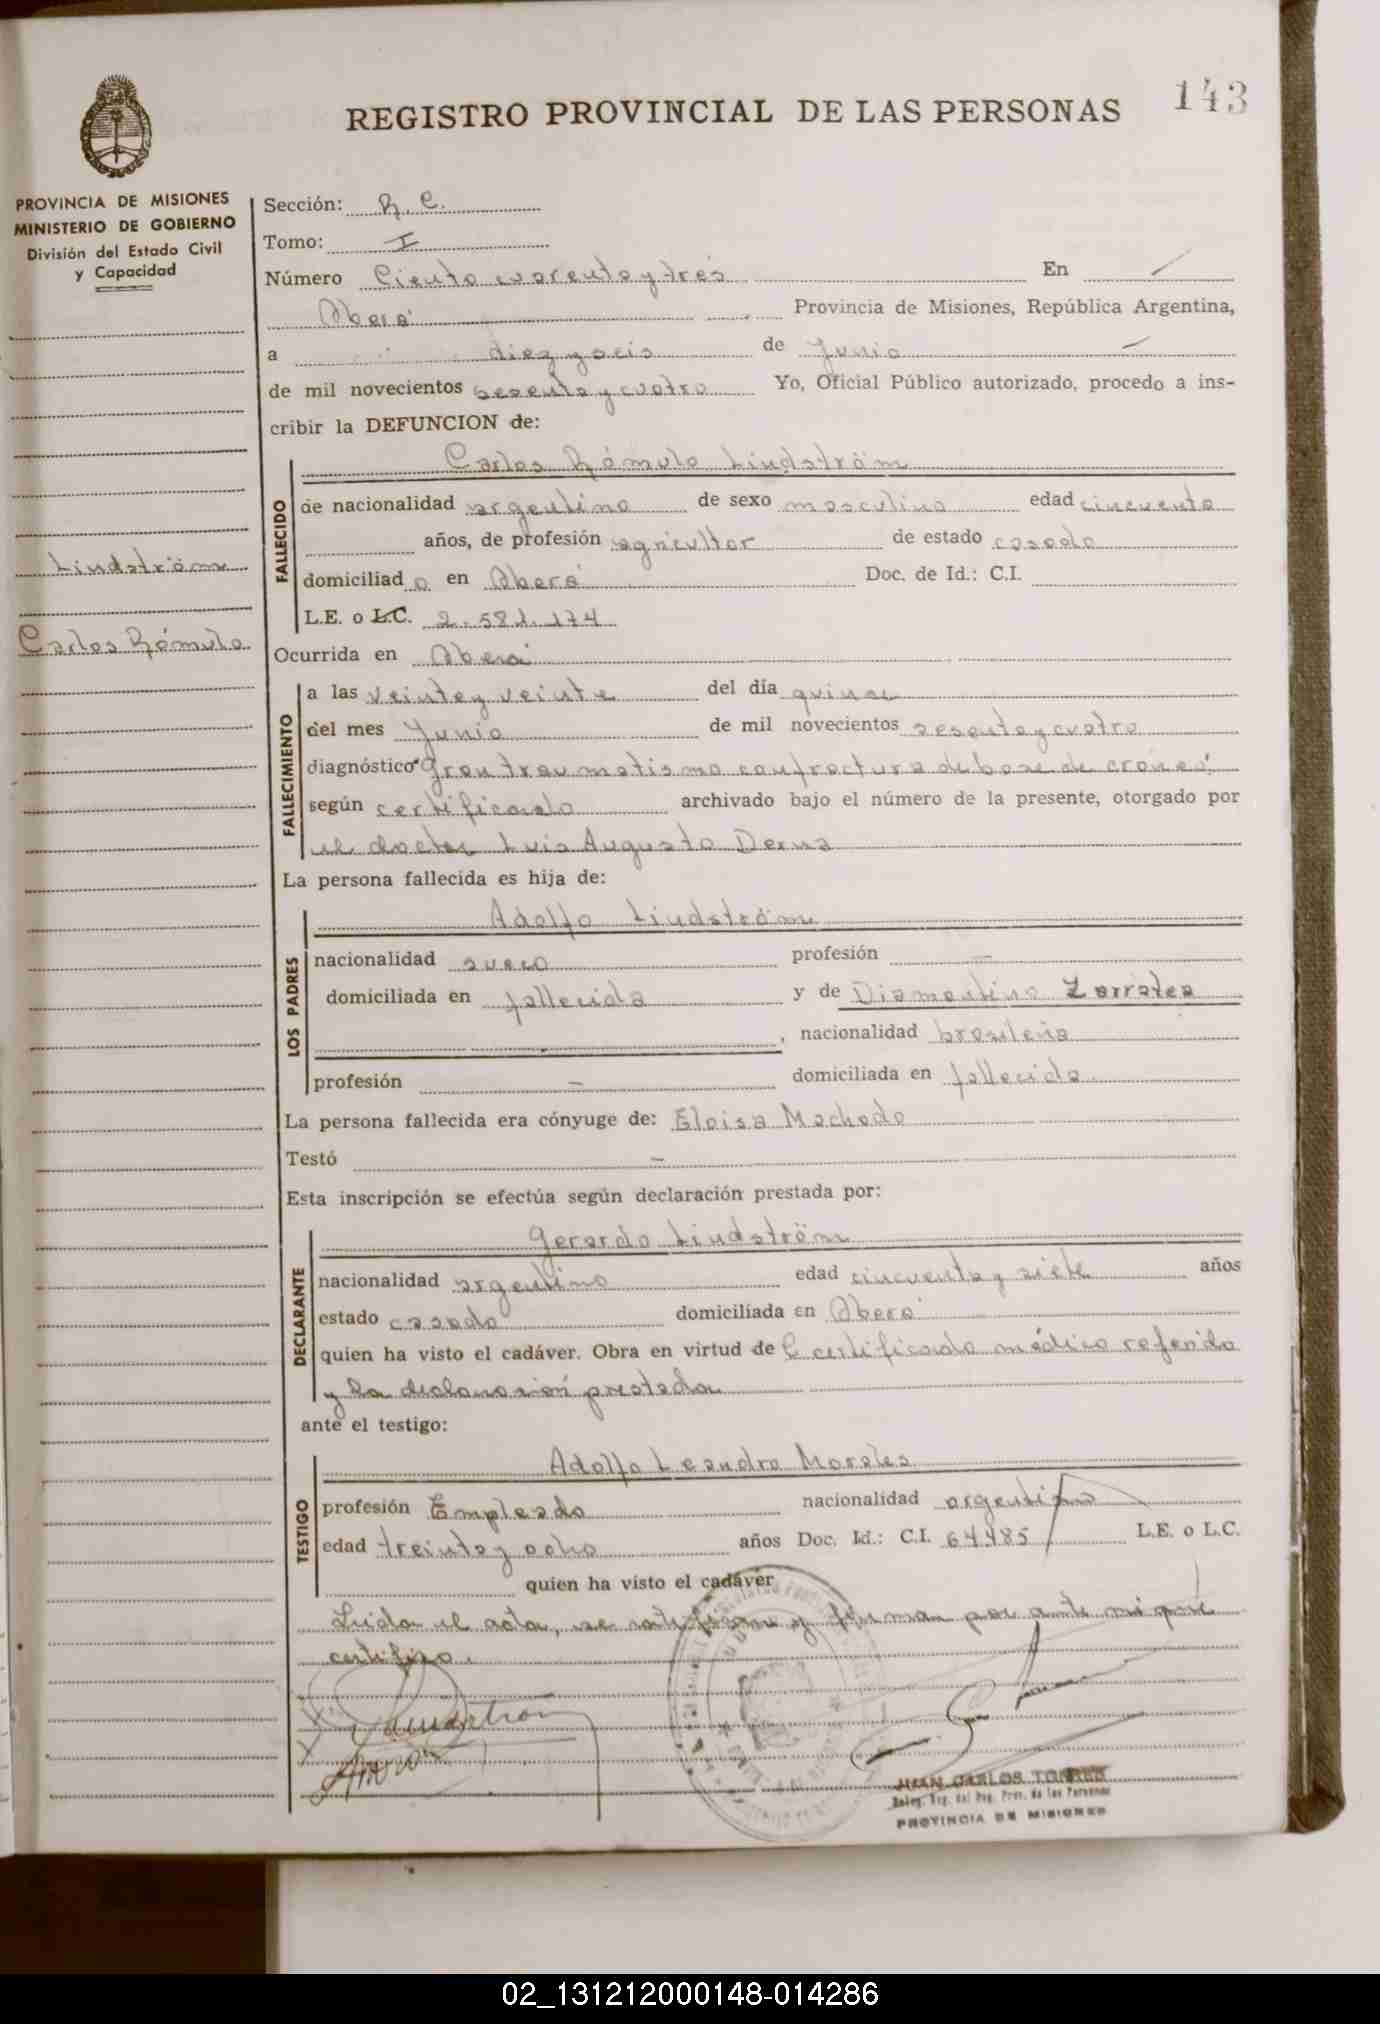 143
REGISTRO PROVINCIAL DE LAS PERSONAS
PROVINCIA DE MISIONES
MINISTERIO DE GOBIERNO
División del Estado Civil
y Capacidad
Lindström
Carlos Rómulo
Sección: R. C.
Tomo: I
Número Ciento cuarenta y tres En
Oberá Provincia de Misiones, República Argentina,
a diez y seis de Junio
de mil novecientos sesenta y cuatro Yo, Oficial Público autorizado, procedo a ins-
cribir la DEFUNCION de:
FALLECIDO
Carlos Rómulo Lindström
de nacionalidad argentino de sexo masculino edad cincuenta
años, de profesión agricultor de estado casado
domiciliad o en Oberá Doc. de Id.: C.I.
L.E. o L.C. 2.581.174
Ocurrida en Oberá
FALLECIMIENTO
a las veinte y veinte del día quince
del mes Junio de mil novecientos sesenta y cuatro
diagnóstico Gran traumatismo con fractura de base de cráneo
según certificado archivado bajo el número de la presente, otorgado por
el doctor Luis Augusto
La persona fallecida es hija de:
LOS PADRES
Adolfo Lindström
nacionalidad sueco profesión -
domiciliada en fallecida y de Diamantina Zarratea
, nacionalidad brasileña
profesión - domiciliada en fallecida
La persona fallecida era cónyuge de: Eloisa Machado
Testó -
Esta inscripción se efectúa según declaración prestada por:
DECLARANTE
Gerardo Lindström
nacionalidad argentino edad cincuenta y siete años
estado casado domiciliada en Oberá
quien ha visto el cadáver. Obra en virtud de certificado médico referido
y la declaración prestada
ante el testigo:
TESTIGO
Adolfo Leandro Morales
profesión Empleado nacionalidad argentino
edad treinta y ocho años Doc. Id.: C.I. 64485 L.E. o L.C.
quien ha visto el cadáver
Leida el acta, se ratifican y firman por ante mi que
certifico.
Lindström
JUAN CARLOS TORRES
Deleg. Reg. del Reg. Prov. de las Personas
PROVINCIA DE MISIONES
02_131212000148-014286